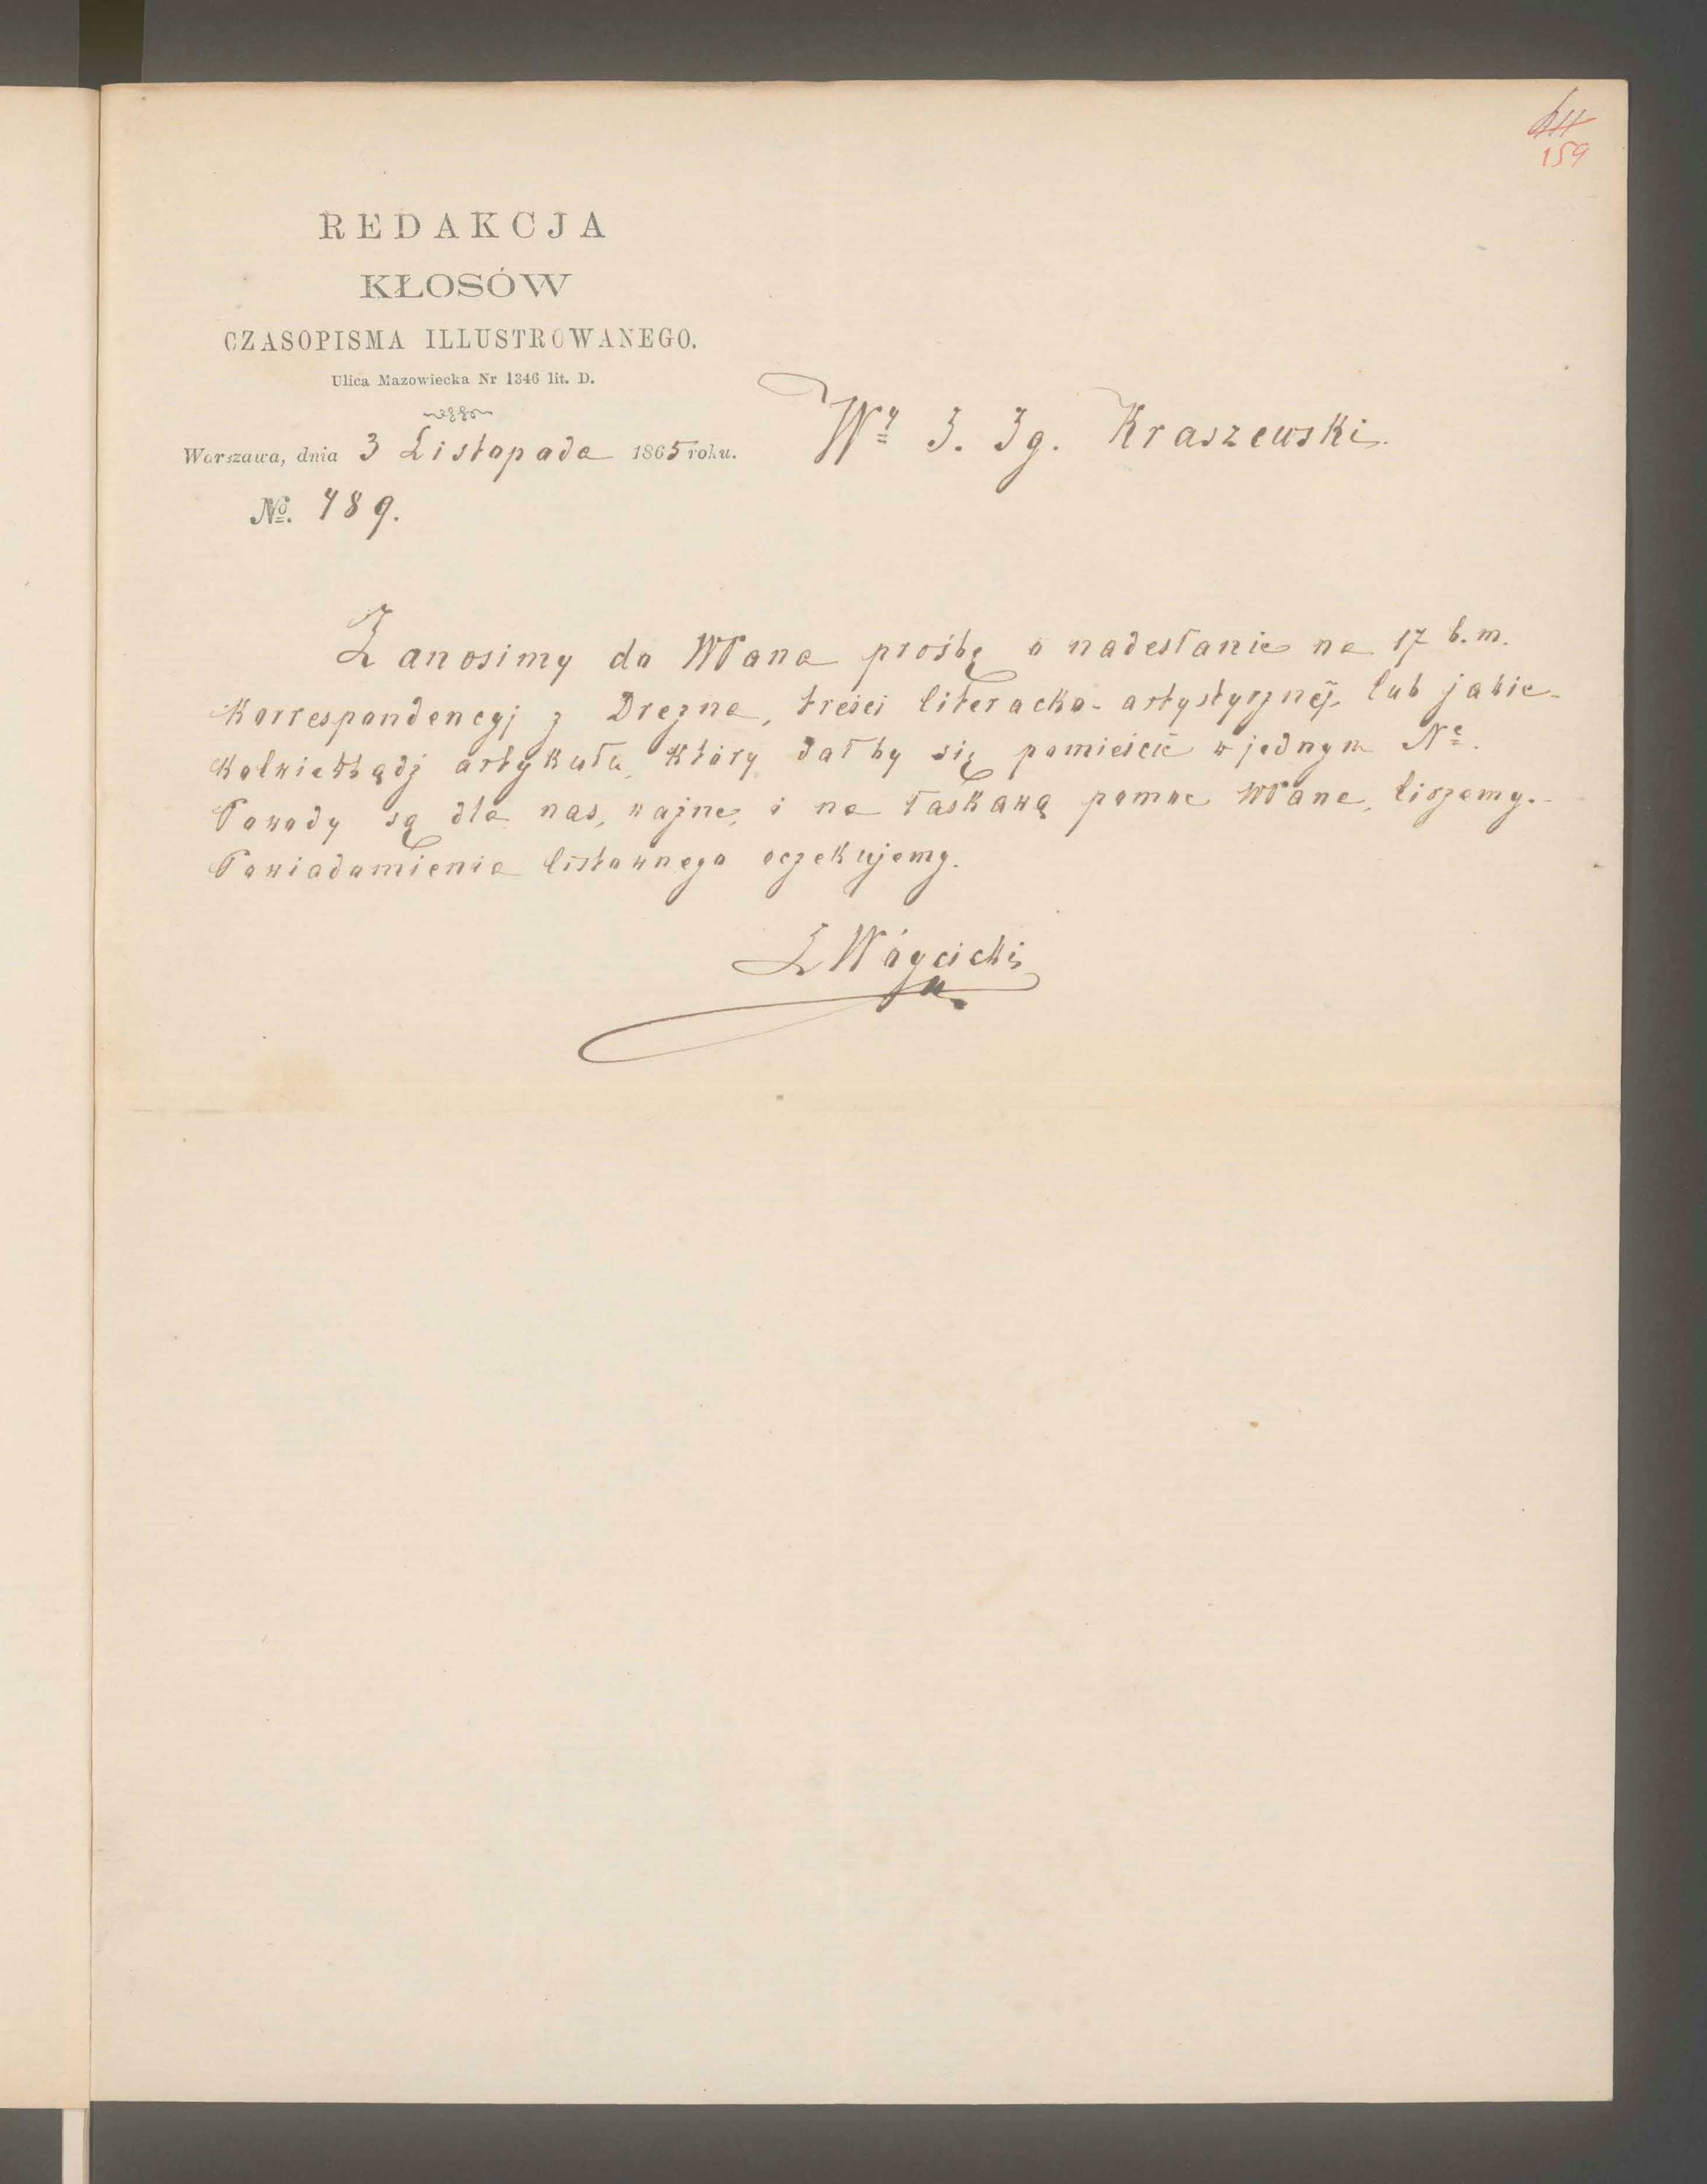 159
REDAKCJA
KŁOSÓW
CZASOPISMA ILLUSTROWANEGO.
Ulica Mazowiecka Nr 1346 lit. D.
Warszawa, dnia 3 Listopada 1865 roku.
Wy J. Ig. Kraszewski.
No. 489.
Zanosimy do WPana prośbę o nadesłanie na 17 b.m.
Korrespondencyj z Drezna, treści literacko-artystycznéj, lub jakie-
kolwiekbądź artykułu, który dałby się pomieścić w jednym Ne.
Powody są dla nas, ważne, i na łaskawą pomoc WPana, liczemy.
Powiadomienia listownego oczekujemy.
Wóycicki